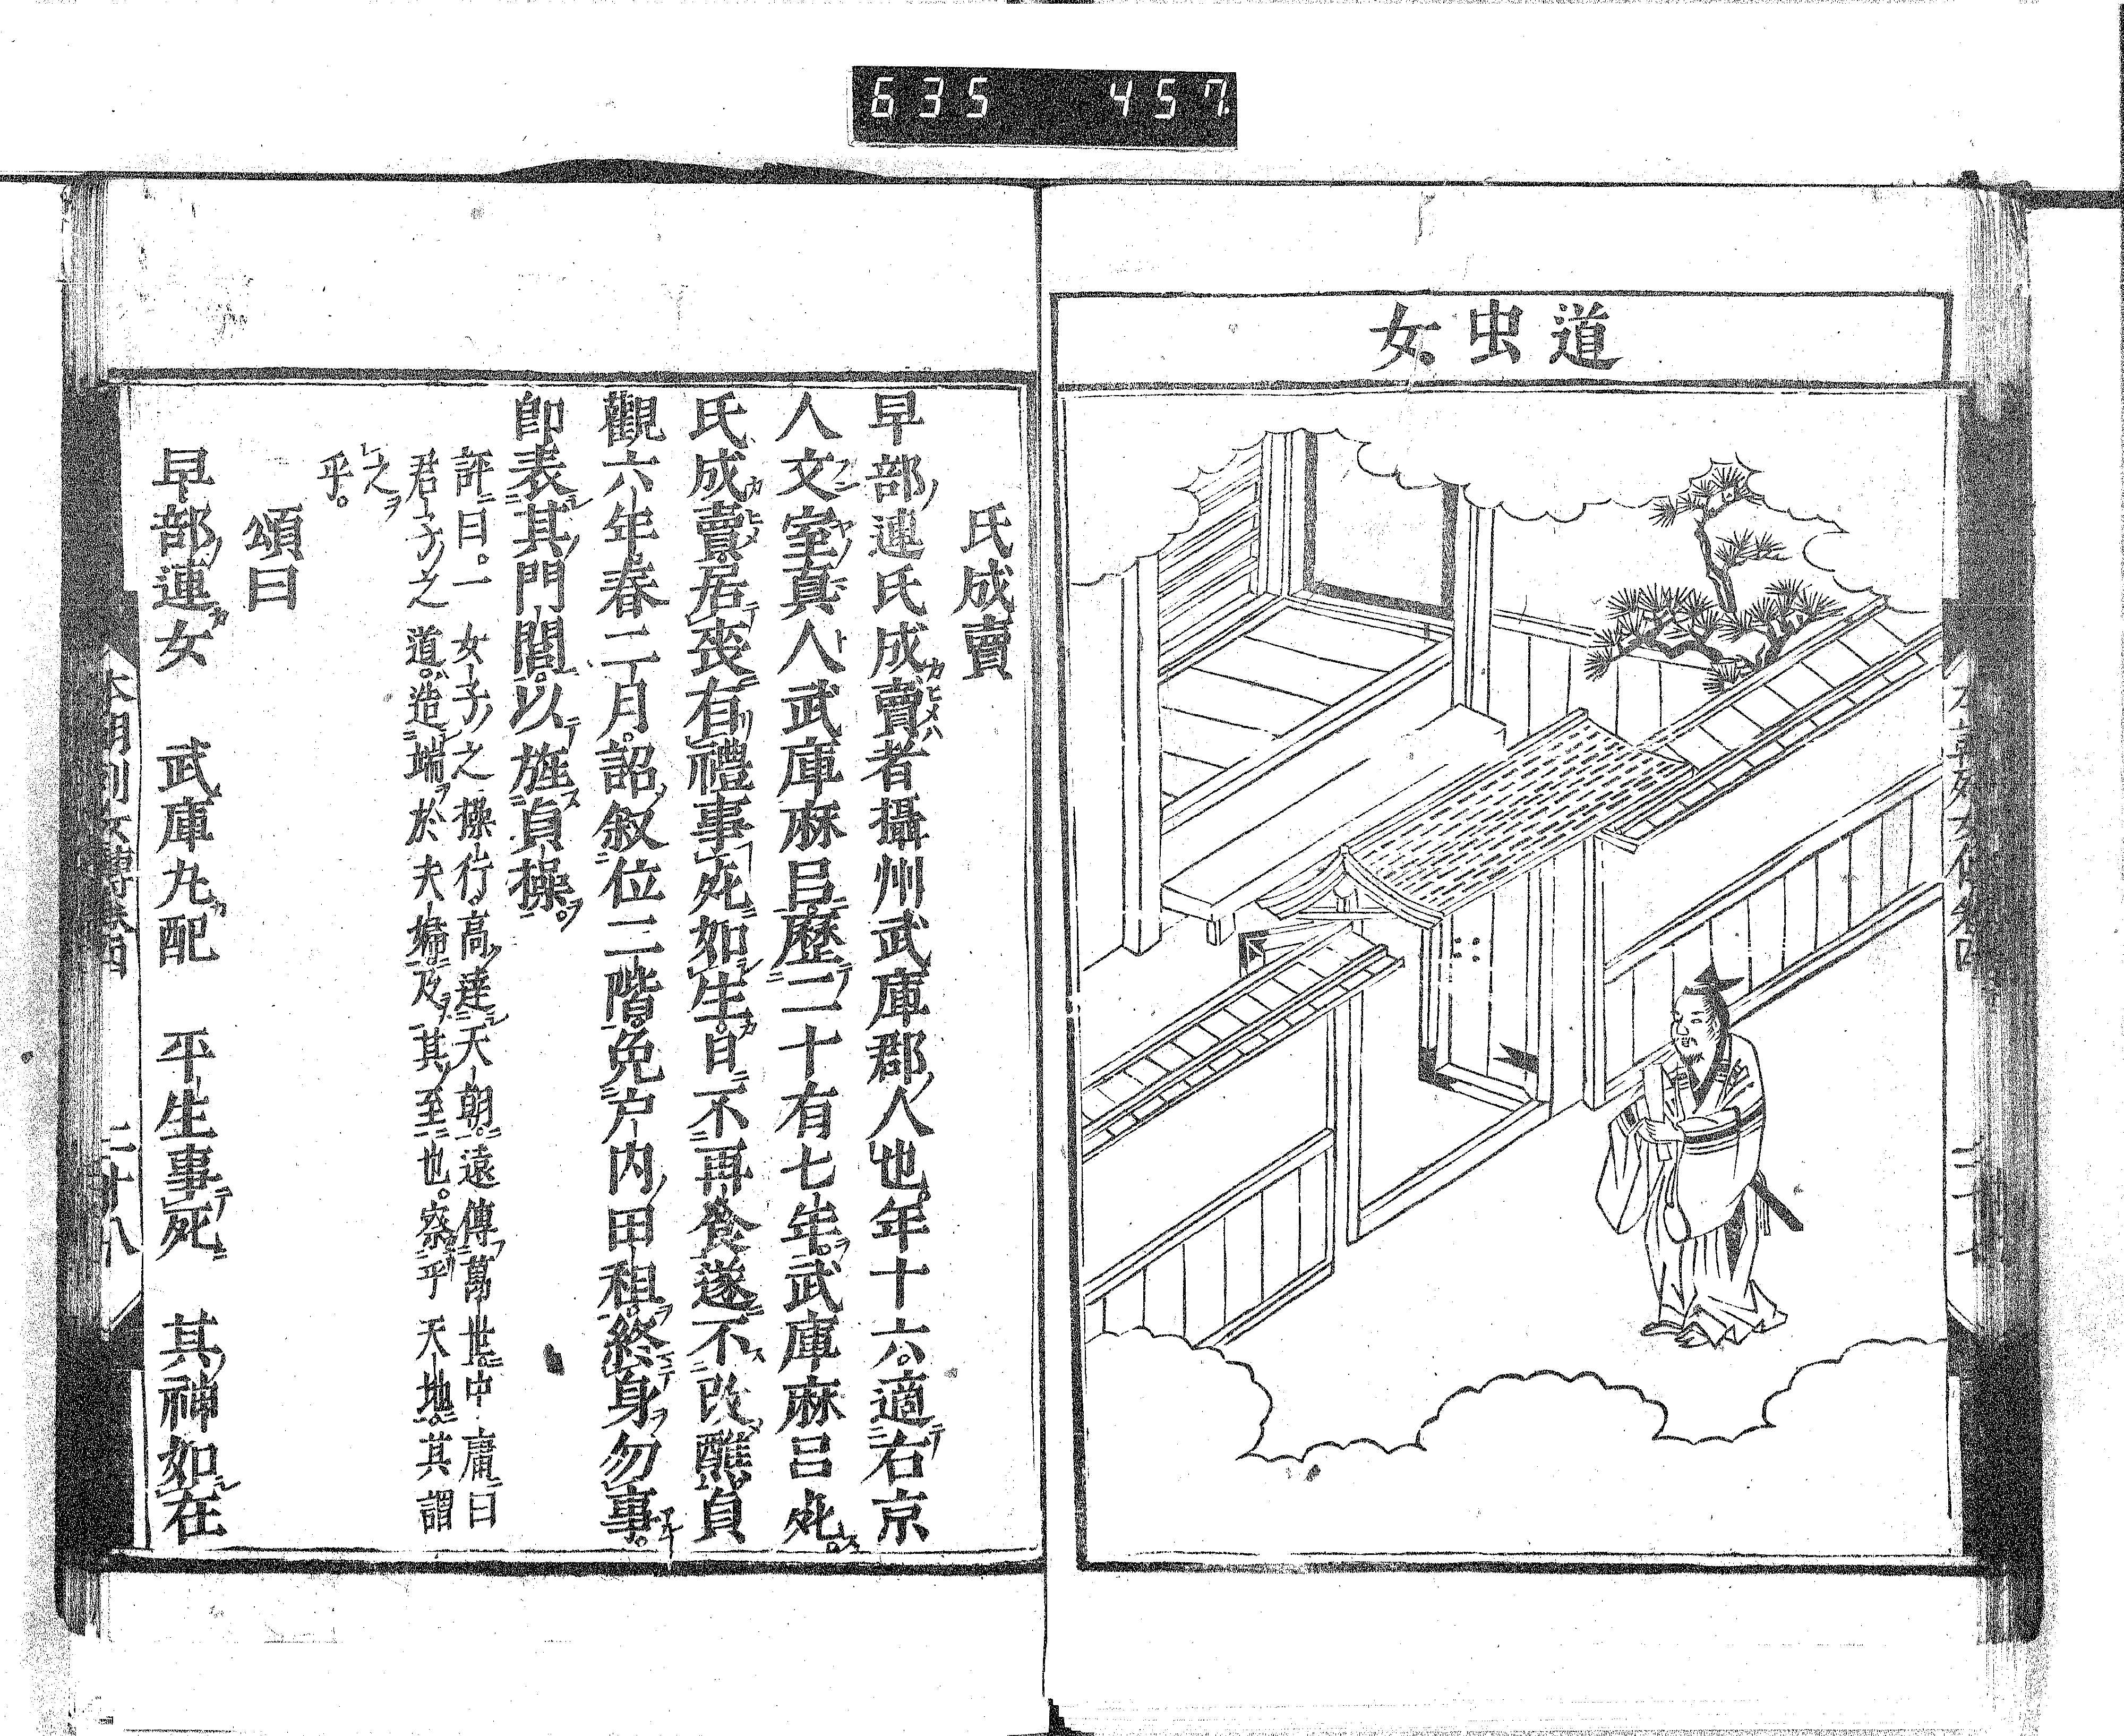 635 457
道虫女
氏成賣
早部連氏成賣者攝州武庫郡人也年十六適右京
人文室真人武庫麻呂歷二十有七年武庫麻呂死
氏成賣居喪有禮事死如生日不再食遂不改醮貞
觀六年春二月詔叙位二階免户内田租終身勿事
即表其門閭以旌貞操
評曰一女子之操行高達天朝遠傳萬世中庸曰
君子之道造端於夫婦及其至也察乎天地其謂
之
乎
頌曰
早部連女 武庫九配 平生事死 其神如在
本朝列女傳卷四 二十八